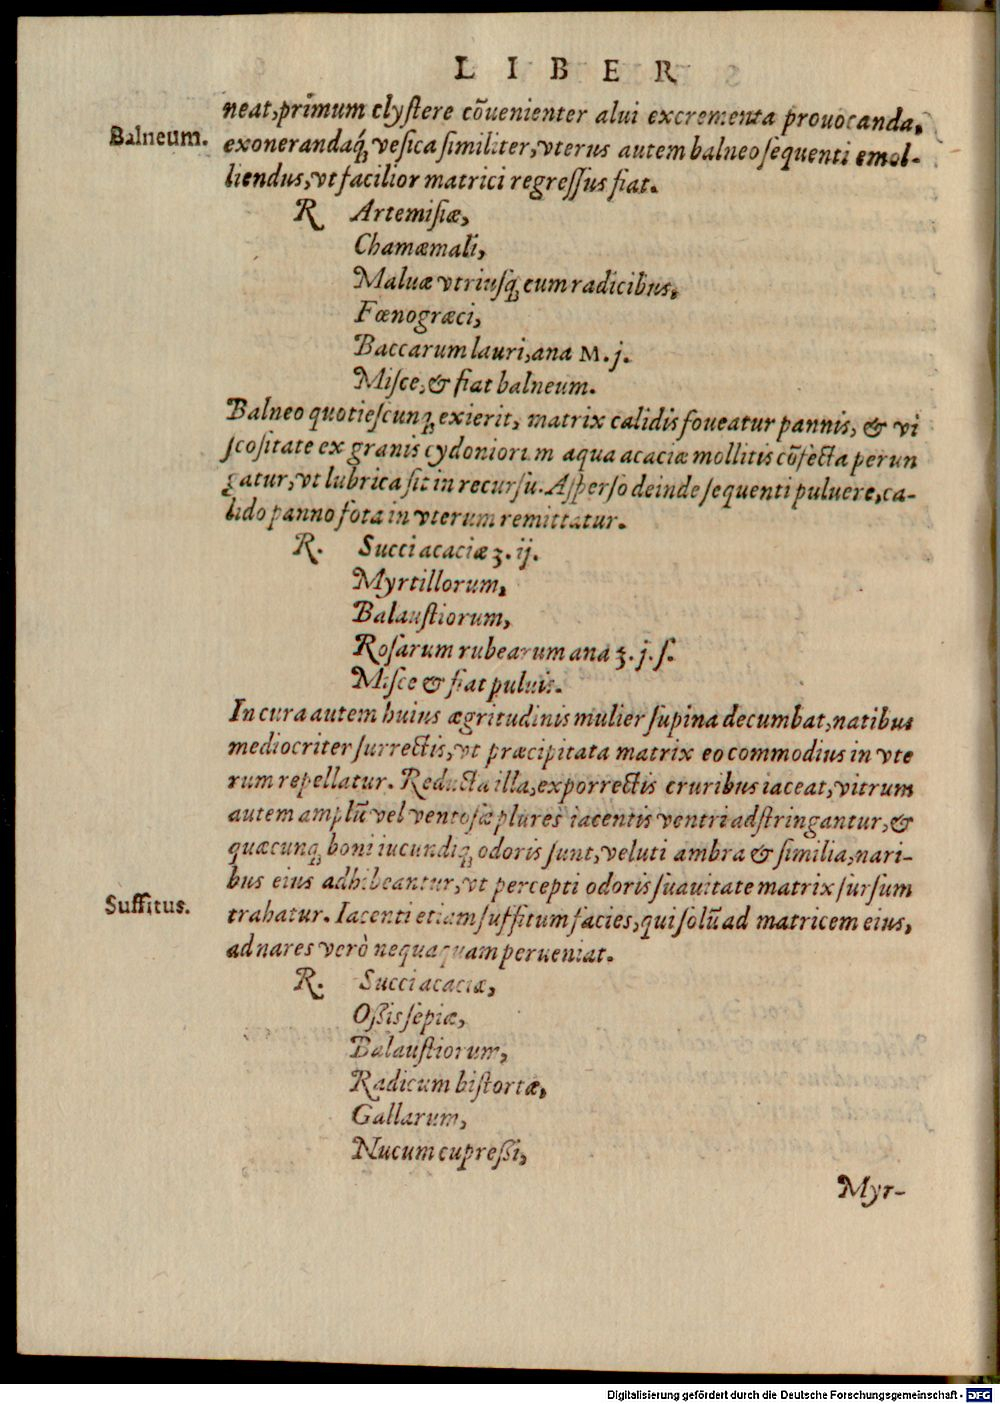 LIBER
neat, primum clyſtere cōuenienter alui excrementa prouocanda,
Balneum.
exonerandaq́; veſica ſimiliter, vterus autem balneo ſequenti emol-
liendus, vt facilior matrici regreſſus fiat.
℞ Artemiſiæ,
Chamæmali,
Maluæ vtriuſq; cum radicibus,
Fœnogræci,
Baccarum lauri, ana M. j.
Miſce, & fiat balneum.
Balneo quotieſcunq; exierit, matrix calidis foueatur pannis, & vi
ſcoſitate ex granis cydoniorum aqua acaciæ mollitis cōfecta perun
gatur, vt lubrica ſit in recurſu. Aſperſo deinde ſequenti puluere, ca-
lido panno fota in vterum remittatur.
℞. Succi acaciæ ʒ. ij.
Myrtillorum,
Balauſtiorum,
Roſarum rubearum ana ʒ. j. ſ.
Miſce & fiat puluis.
In cura autem huius ægritudinis mulier ſupina decumbat, natibus
mediocriter ſurrectis, vt præcipitata matrix eo commodius in vte
rum repellatur. Reducta illa, exporrectis cruribus iaceat, vitrum
autem amplū vel ventoſæ plures iacentis ventri adſtringantur, &
quæcunq; boni iucundiq; odoris ſunt, veluti ambra & ſimilia, nari-
bus eius adhibeantur, vt percepti odoris ſuauitate matrix ſurſum
Suffitus.
trahatur. Iacenti etiam ſuffitum facies, qui ſolū ad matricem eius,
ad nares verò nequaquam perueniat.
℞. Succi acaciæ,
Oſsis ſepiæ,
Balauſtiorum,
Radicum biſtortæ,
Gallarum,
Nucum cupreſsi,
Myr-
Digitalisierung gefördert durch die Deutsche Forschungsgemeinschaft - DFG